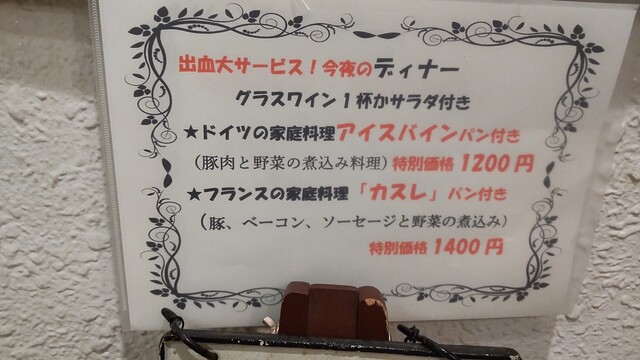 出血大サービス!今夜のディナー
グラスワイン1杯かサラダ付き
★ドイツの家庭料理アイスバインパン付き
(豚肉と野菜の煮込み料理)特別価格1200円
★フランスの家庭料理「カスレ」パン付き
(豚、ベーコン、ソーセージと野菜の煮込み)
特別価格1400円